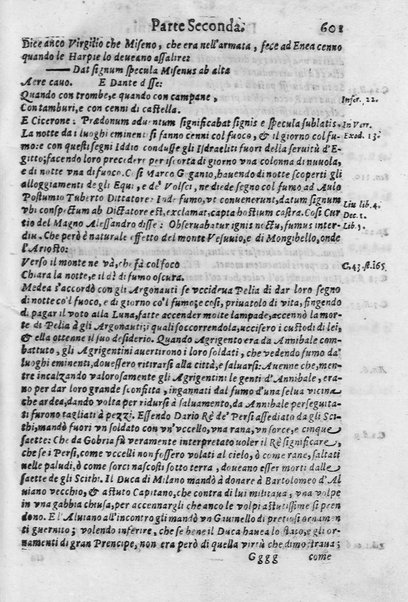 Parte Seconda. 601
Dice anco Virgilio che Miseno, che era nell'armata, fece ad Enea cenno
quando le Harpie lo deueano assalire:
Dat signum specula Misenus ab alta
Aere cauo. E Dante disse:
Quando con trombe, e quando con campane, Infer. 22.
Con tamburi, e con cenni di castella.
E Cicerone: Prædonum aduentum significabat signis e specula sublatis. In Verr.
La notte da i luoghi eminenti si fanno cenni col fuoco, & il giorno col fu- Exod. 13.
mo: con questi segni Iddio condusse gli Isdraeliti fuori della seruitù d'E-
gitto; facendo loro precedere per iscorta di giorno vna colonna di nuuola,
e di notte vna di fuoco. Così Marco Gganio, hauendo di notte scoperti gli
alloggiamenti de gli Equi, e de' Volsci, ne diede segno col fumo ad Aulo
Postumio Tuberto Dittatore: Iod. fumo, vt conuenerunt, datum signum Liu lib. 4.
vbi conspectum ab Dictatore est, exclamat, capta hostium castra. Così Cur Dec. 1.
tio del Magno Alessandro disse: Obseruabatur ignis noctu, fumus inter- Lib. 5.
diu. Che però è naturale effetto del monte Vesuuio, e di Mongibello, onde
l'Ariosto:
Verso il monte ne và, che fà col foco C. 43. st. 165
Chiara la notte, e il dì di fumo oscura.
Medea s'accordò con gli Argonauti se vccideua Pelia di dar loro segno
di notte co'l fuoco, e di giorno co'l fumo; e così, priuatolo di vita, fingendo
di pagar il voto alla Luna, fatte accender molte lampade, accennò la mor-
te di Pelia à gli Argonauti; i quali soccorrendola, vccisero i custodi di lei,
& ella ottenne il suo desiderio. Quando Agrigento era da Annibale com-
battuto, gli Agrigentini auertirono i loro soldati, che vedendo fumo da'
luoghi eminenti, douessero ritirarsi alla città, e saluarsi: Auenne che, men-
tre incalzando valorosamente gli Agrigentini le genti d'Annibale, era-
no per dar loro grande sconfitta, ingannati dal fumo d'vna selua vicina
che ardea, dando volta per ridursi à saluamento, da Annibale persegui-
ti furono tagliati à pezzi. Essendo Dario Rè de' Persi assediato da gli Sci-
thi, mandò fuori vn soldato con vn'vccello, vna rana, vn sorce, e cinque
saette: che da Gobria fù veramente interpretato voler il Rè significare,
che se i Persi, come vccelli non fossero volati al cielo, ò come rane, saltati
nelle paludi, ò come sorci nascosti sotto terra, doueano esser morti dalle
saette de gli Scithi. Il Duca di Milano mandò à donare à Bartolomeo d'Al
uiano vecchio, & astuto Capitano, che contra di lui militaua, vna volpe
in vna gabbia chiusa, per accennargli che anco le volpi astutissime si pren
dono. E l'Aluiano all'incontro gli mandò vn Gauinello di pretiosi ornamen
ti guernito; volendo inferire, che se bene il Duca hauea lo stato, e gli or-
namenti di gran Prencipe, non era però di quella virtù che dimostraua;
Gggg come